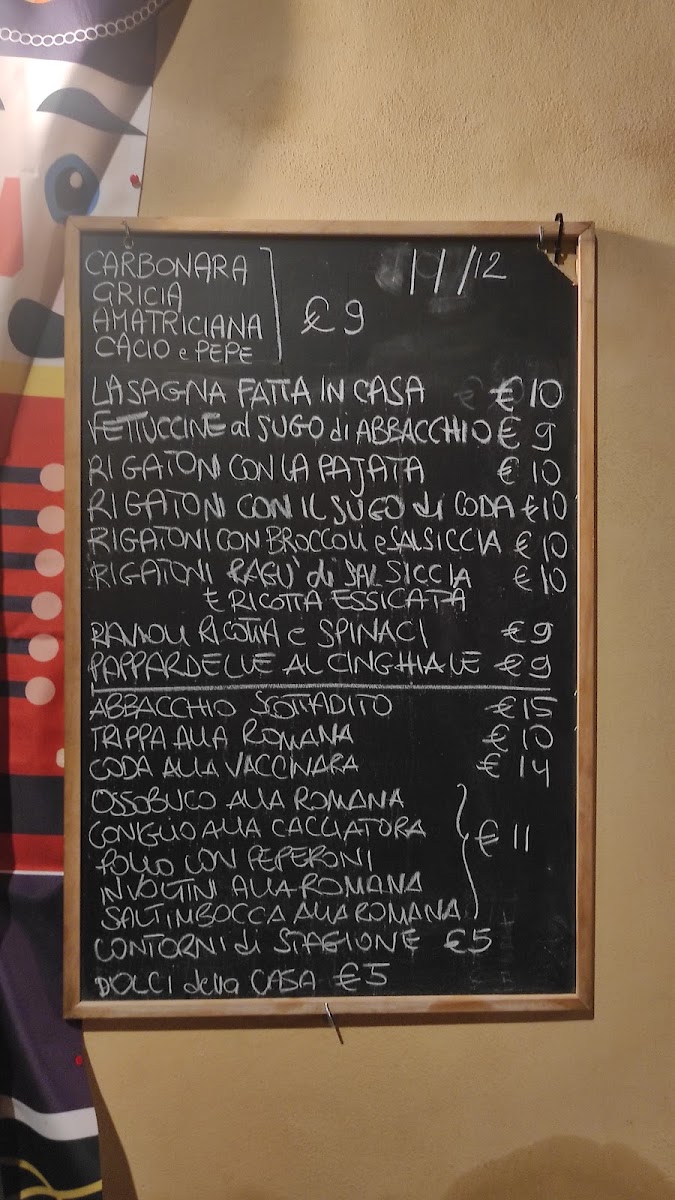 11/12
CARBONARA
GRICIA
AMATRICIANA
CACIO e PEPE
€ 9
LASAGNA FATTA IN CASA € 10
FETTUCCINE al SUGO di ABBACCHIO € 9
RIGATONI CON LA PAJATA € 10
RIGATONI CON IL SUGO di CODA €10
RIGATONI CON BROCCOLI e SALSICCIA € 10
RIGATONI RAGU' di SALSICCIA €10
E RICOTTA ESSICATA
RAVIOLI RICOTTA e SPINACI €9
PAPPARDELLE AL CINGHIALE €9
ABBACCHIO SCOTTADITO €15
TRIPPA ALLA ROMANA € 10
CODA ALLA VACCINARA € 14
OSSOBUCO ALLA ROMANA
CONIGLIO ALLA CACCIATORA
POLLO CON PEPERONI
INVOLTINI ALLA ROMANA
SALTIMBOCCA ALLA ROMANA
€ 11
CONTORNI di STAGIONE €5
DOLCI della CASA €5